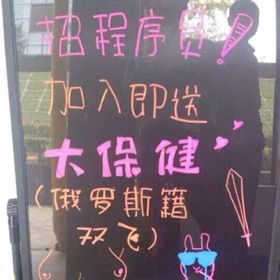 招程序员!
加入即送
大保健
(俄罗斯籍
双飞)